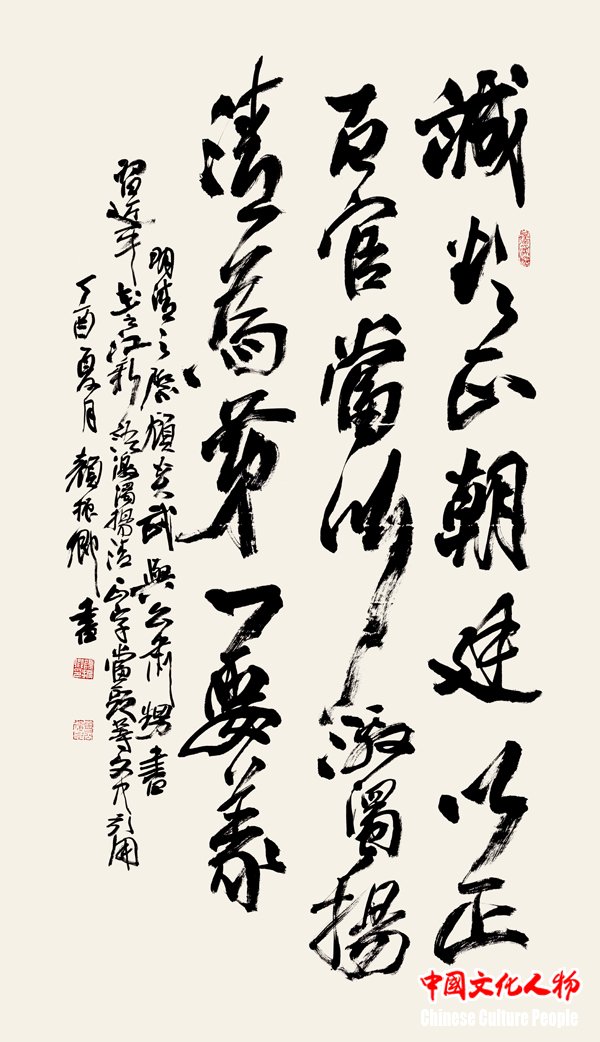 誠欲正朝廷以正
百官當以激濁揚
清為第一要義
明清之際顧炎武與公肅甥書
習近平之江新語激濁揚清正字當頭等文中引用
丁酉夏月顏振卿書
中國文化人物
Chinese Culture People